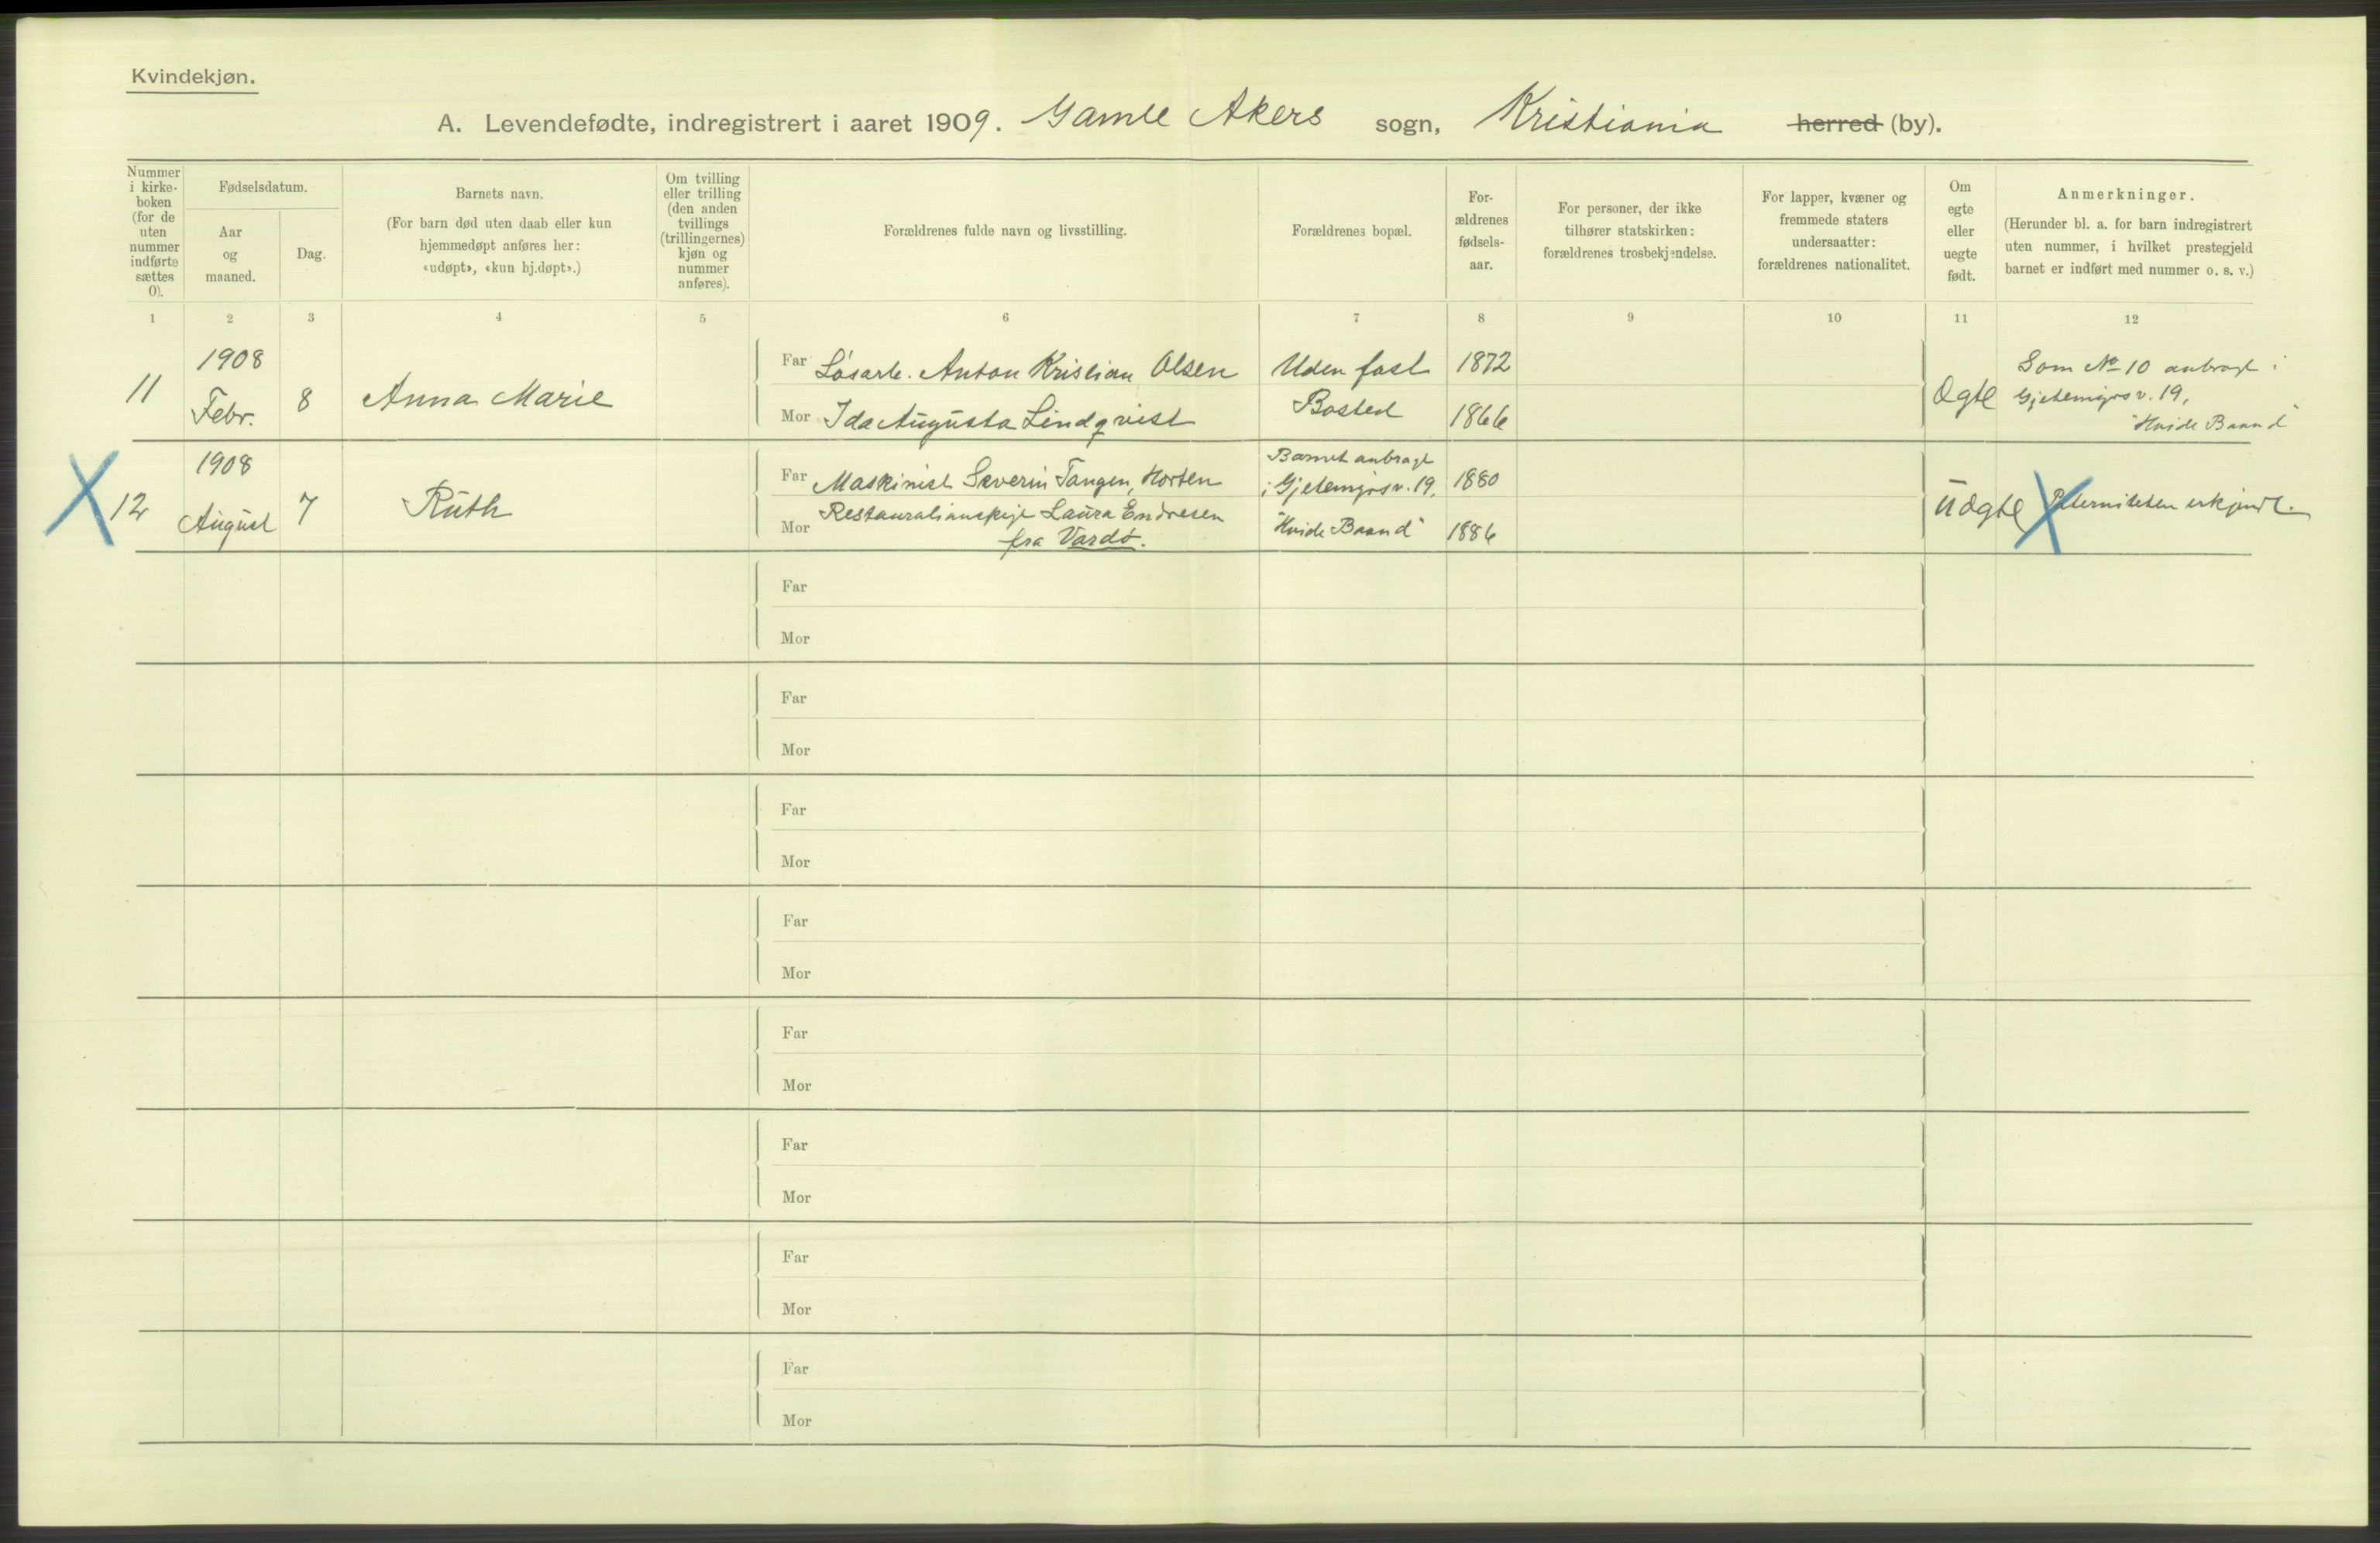 Kvindekjøn.
A. Levendefødte, indregistrert i aaret 1909. Gamle Akers sogn, Kristiania herred (by).
Nummer i kirke-boken (for de uten nummer indførte sættes 0).
Fødselsdatum.
Aar og maaned.
Dag.
Barnets navn.
(For barn død uten daab eller kun hjemmedøpt anføres her: «udøpt», «kun hj.døpt».)
Om tvilling eller trilling (den anden tvillings (trillingernes) kjøn og nummer anføres).
Forældrenes fulde navn og livsstilling.
Forældrenes bopæl.
For-ældrenes fødsels-aar.
For personer, der ikke tilhører statskirken: forældrenes trosbekjendelse.
For lapper, kvæner og fremmede staters undersaatter: forældrenes nationalitet.
Om egte eller uegte født.
Anmerkninger.
(Herunder bl. a. for barn indregistrert uten nummer, i hvilket prestegjeld barnet er indført med nummer o. s. v.)
1 2 3 4 5 6 7 8 9 10 11 12
11 1908 Febr. 8 Anna Marie
Far Løsarb. Anton Kristian Olsen Uden fast 1872
Mor Ida Augusta Lindqvist Bosted 1866
Ægte
Som No 10 anbragt i
Gjetemyrsv. 19,
"Hvide Baand"
X 12 1908 August 7 Ruth
Far Maskinist Severin Tangen, Horten 1880
Mor Restaurationspige Laura Endresen
fra Vardø. 1886
Barnet anbragt
i Gjetemyrsv. 19,
"Hvide Baand"
Uægte X Paterniteten erkjendt.
Far
Mor
Far
Mor
Far
Mor
Far
Mor
Far
Mor
Far
Mor
Far
Mor
Far
Mor